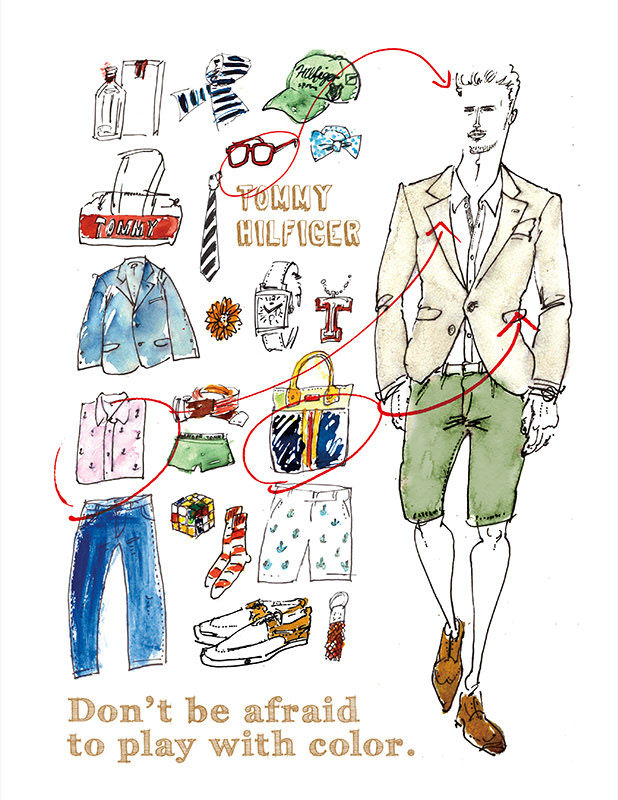 Hilfiger
TOMMY
HILFIGER
TOMMY
T
Don't be afraid
to play with color.